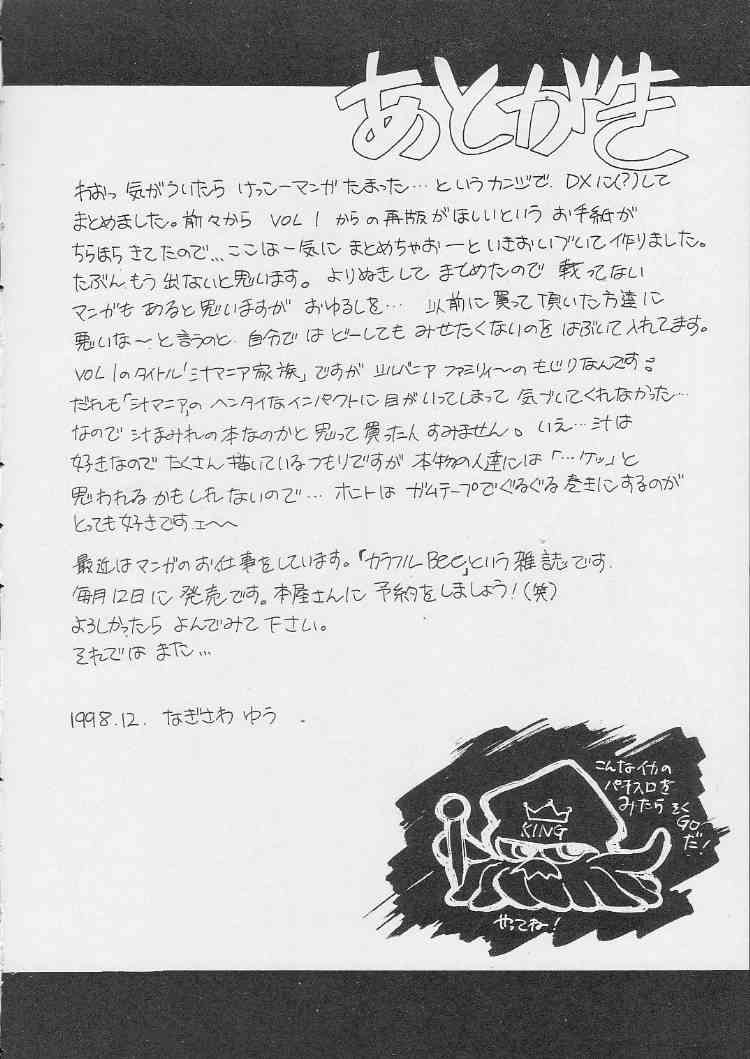 あとがき
わおっ 気がついたら けっこーマンガたまった…というカンジで、DXに(?)して
まとめました。前々から VOL 1 からの再版がほしいという お手紙が
ちらほらきてたので… ここは一気に まとめちゃおーといきおいづいて作りました。
たぶんもう出ないと思います。よりぬきして まとめたので 載ってない
マンガも あると思いますが おゆるしを… 以前に買って頂いた方達に
悪いな〜と言うのと、自分では どーしても みせたくないのを はぶいて入れてます。
VOL 1のタイトル「汁マニア家族」ですが シルバニア ファミリィ〜の もじりなんです。
だれも「汁マニア」の ヘンタイなインパクトに目がいってしまって 気づいてくれなかった…
なので 汁まみれの本なのかと思って買った人すみません。いえ…汁は
好きなので たくさん描いているつもりですが 本物の人達には「…ケッ」と
思われるかもしれないので… ホントは ガムテープでぐるぐる巻きにするのが
とっても好きですェ〜〜
最近はマンガのお仕事をしています。「カラフルBee」という雑誌です。
毎月12日に 発売です。本屋さんに 予約をしましょう!(笑)
よろしかったら よんでみて下さい。
それでは また…
1998.12. なぎさわ ゆう .
こんなイカの
パチスロを
みたら そく
GO
だ!
KING
やってね!